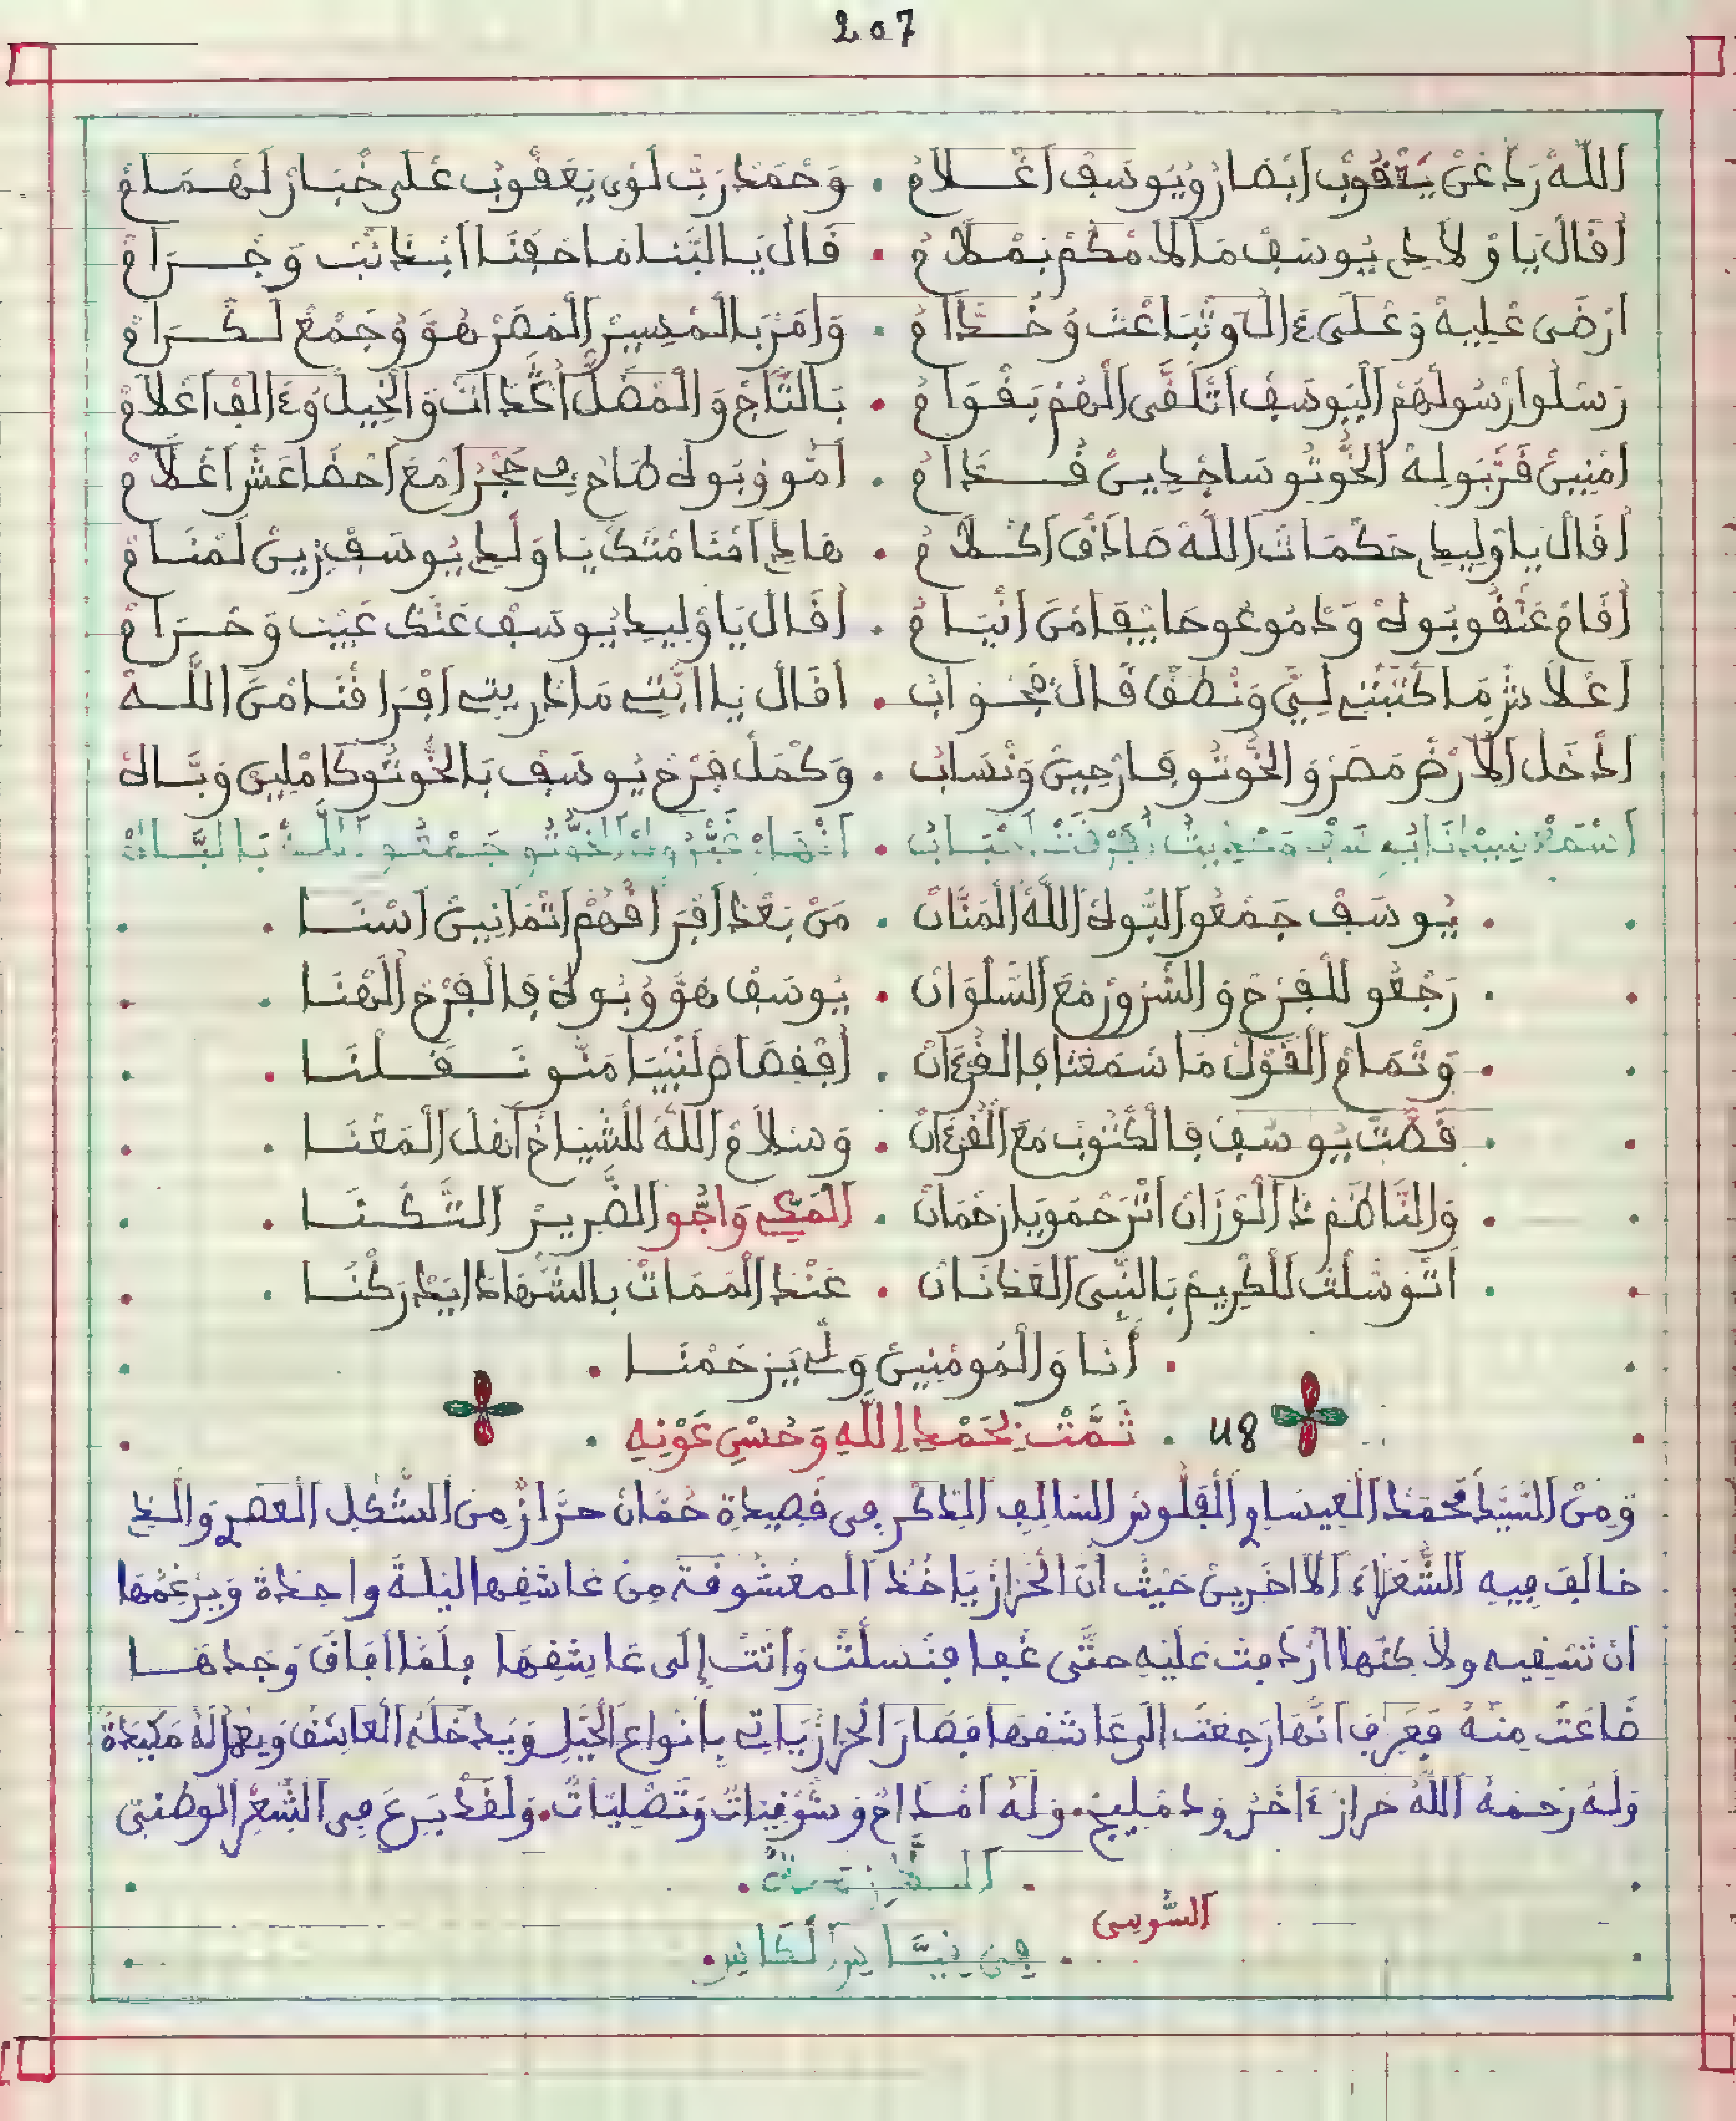 207
اللَّه رَدْ عْنْ يَعْقُوبْ ابْصَارُ ويُوسَفْ اغْلامْ . وَحْمَدْ رَبّ لَوّى يَعْقُوبْ عْلَى خْبَارْ لَهْمَامْ
أقَالْ يَا وْلادِي يُوسَفْ مَا لامْكُمْ بَمْلامْ . قَالْ يَا ابَّنَا مَا حَقْنَا
ارْضَى عْلِيهْ وَعْلَى ءالُ وتْبَاعْتُ وُخْدّامْ . وَامَرْ بَالْمْسِيرْ الْمَصَرْ هُوَ وُجَمْعْ لَكْرَامْ
رَسَلُوا رْسُولْهُمْ الْيُوسَفْ اتْلَقَّى الْهُمْ بَقْوَامْ . بَالتَّاجْ وَ وَالْخِيلْ وُءالَفْ اعْلامْ
امْنِينْ قَرّبُو لِهْ الْخُوتُو سَاجْدِينْ قُدّامْ . امُّو وْبُوهْ طَاحْ فِي حَجْرُ امْعَ احْضَاعَشْ اغْلامْ
أقَالْ يا وْلِيدِي حَكْمَاتْ اللَّهْ صَادَقْ اكْلامْ . هَادِي امْنَامْتَكْ يَا وَلْدِي يُوسَفْ زِينْ لَمْنَامْ
أقَامْ عَنْقُو بُوهْ وَدْمُوعُو حَايْفَا مَنْ انْيَامْ . أقَالْ يَا وْلِيدِي يُوسَفْ عَنَّكْ غَيْبْ وَحْرَامْ
اعْلاشْ مَا كْتَبْتِي لِيّ وَنْطَقْ قَالْ فَجْوَابْ . أقَالْ يَا ابْتِي مَا دْرِيتِي افْرَاقْنَا مْنَ اللَّهْ
ادْخَلْ الارْضْ مَصَرْ وَالْخُوتُو فَارْحِينْ وَنْسَابْ . وَكْمَلْ فَرْحْ يُوسَفْ بَالْخُوتُو كَامْلِينْ وَبَّاهْ
. يُوسَفْ جَمْعُو الْبُوهْ اللَّهْ الْمَنَّانْ . مَنْ بَعْدْ افْرَاقْهُمْ اتْمَانِينْ اسْنَا .
. رَجْعُو لَلْفَرْحْ وَالسّرُورْ مَعَ السّلْوَانْ . يُوسَفْ هُوَّ وُبُوهْ فَالْفَرْحْ الْهْنَا .
. وَتْمَامْ الْقَوْلْ مَا سْمَعْنَا فَالْقُرْءَانْ . افْقْصَاصْ لَنْبِيَا مَنُّو نَقْلْنَا .
. قَصّتْ يُوسَفْ فَالْكْتُوبْ مَعَ الْقُرْءَانْ . وَسْلامْ اللَّهْ لَلشّيَاخْ اهْلْ الْمَعْنَا .
. وَالنَّاظَمْ دَ الْوْزَانْ اتْرَحْمُو يَا رَحْمَانْ . الْمَكِّي وَاجُّو الضّرِيرْ السُّكْنَا .
. اتْوَسّلْتْ لَلْكْرِيمْ بَالنّبِي الْعَدْنَانْ . عَنْدْ الْمَمَاتْ بالشّهَادَا ايْدْرَكْنَا .
. أنَا وَالْمُومْنِينْ وَلِّي يَرْحَمْنَا .
48 . تَمَّتْ بِحَمْدِ اللَّهِ وَحُسْنِ عَوْنِهِ .
وَمِنَ السَّيِّدْ مُحَمَّدْ الْعِيسَاوِي الْفَلُوسْ السَّالِفِ الذِّكْرِ فِي قَصِيدَةْ حُمَّانْ حرَّازْ مِنَ الشَّكْلِ الْعَصْرِي وَالَّذِي
خَالَفَ فِيهِ الشُّعَرَاءَ الآخَرِينْ حَيْثُ أنَّ الْحَرَّازْ يَاخُذُ الْمَعْشُوقَةْ مِنْ عَاشِقِهَا لَيْلَةً وَاحِدَةْ وَيَرْغَمُهَا
أنْ تَسْقِيهِ وَلاكِنَّهَا ارْدَفَتْ عَلَيْهِ حَتَّى غَفَا فَنَسَلَتْ وَأتَتْ إلَى عَاشِقِهَا فَلَمَّا افَاقَ وَجَدَهَا
ضَاعَتْ مِنْهُ فَعَرَفَ انَّهَا رَجَعَتْ الَى عَاشِقِهَا فَصَارَ الْحَرَّازْ يَاتِي بِأنْوَاعِ الْحِيَلِ وَيَدْخُلُهْ الْعَاشِقْ وَيَهْزِ لَهُ مَكِيدَةْ
وَلَهُ رَحِمَهُ اللَّهُ حَرَّازْ ءاخَرْ وِدْ مْلِيحْ. وَلَهُ امْدَاحْ وَشَوْقِيَّاتْ وَتَصْلِيَاتْ. وَلَقَدْ بَرَعَ فِي الشِّعْرِ الْوَطَنِي
السُّوسِي